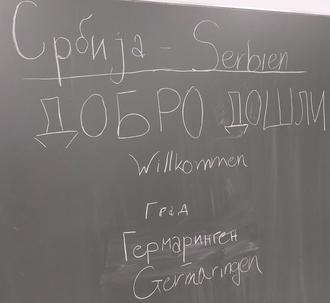 Србија - Serbien
ДОБРО ДОШЛИ
Willkommen
Град
Гермаринген
Germaringen